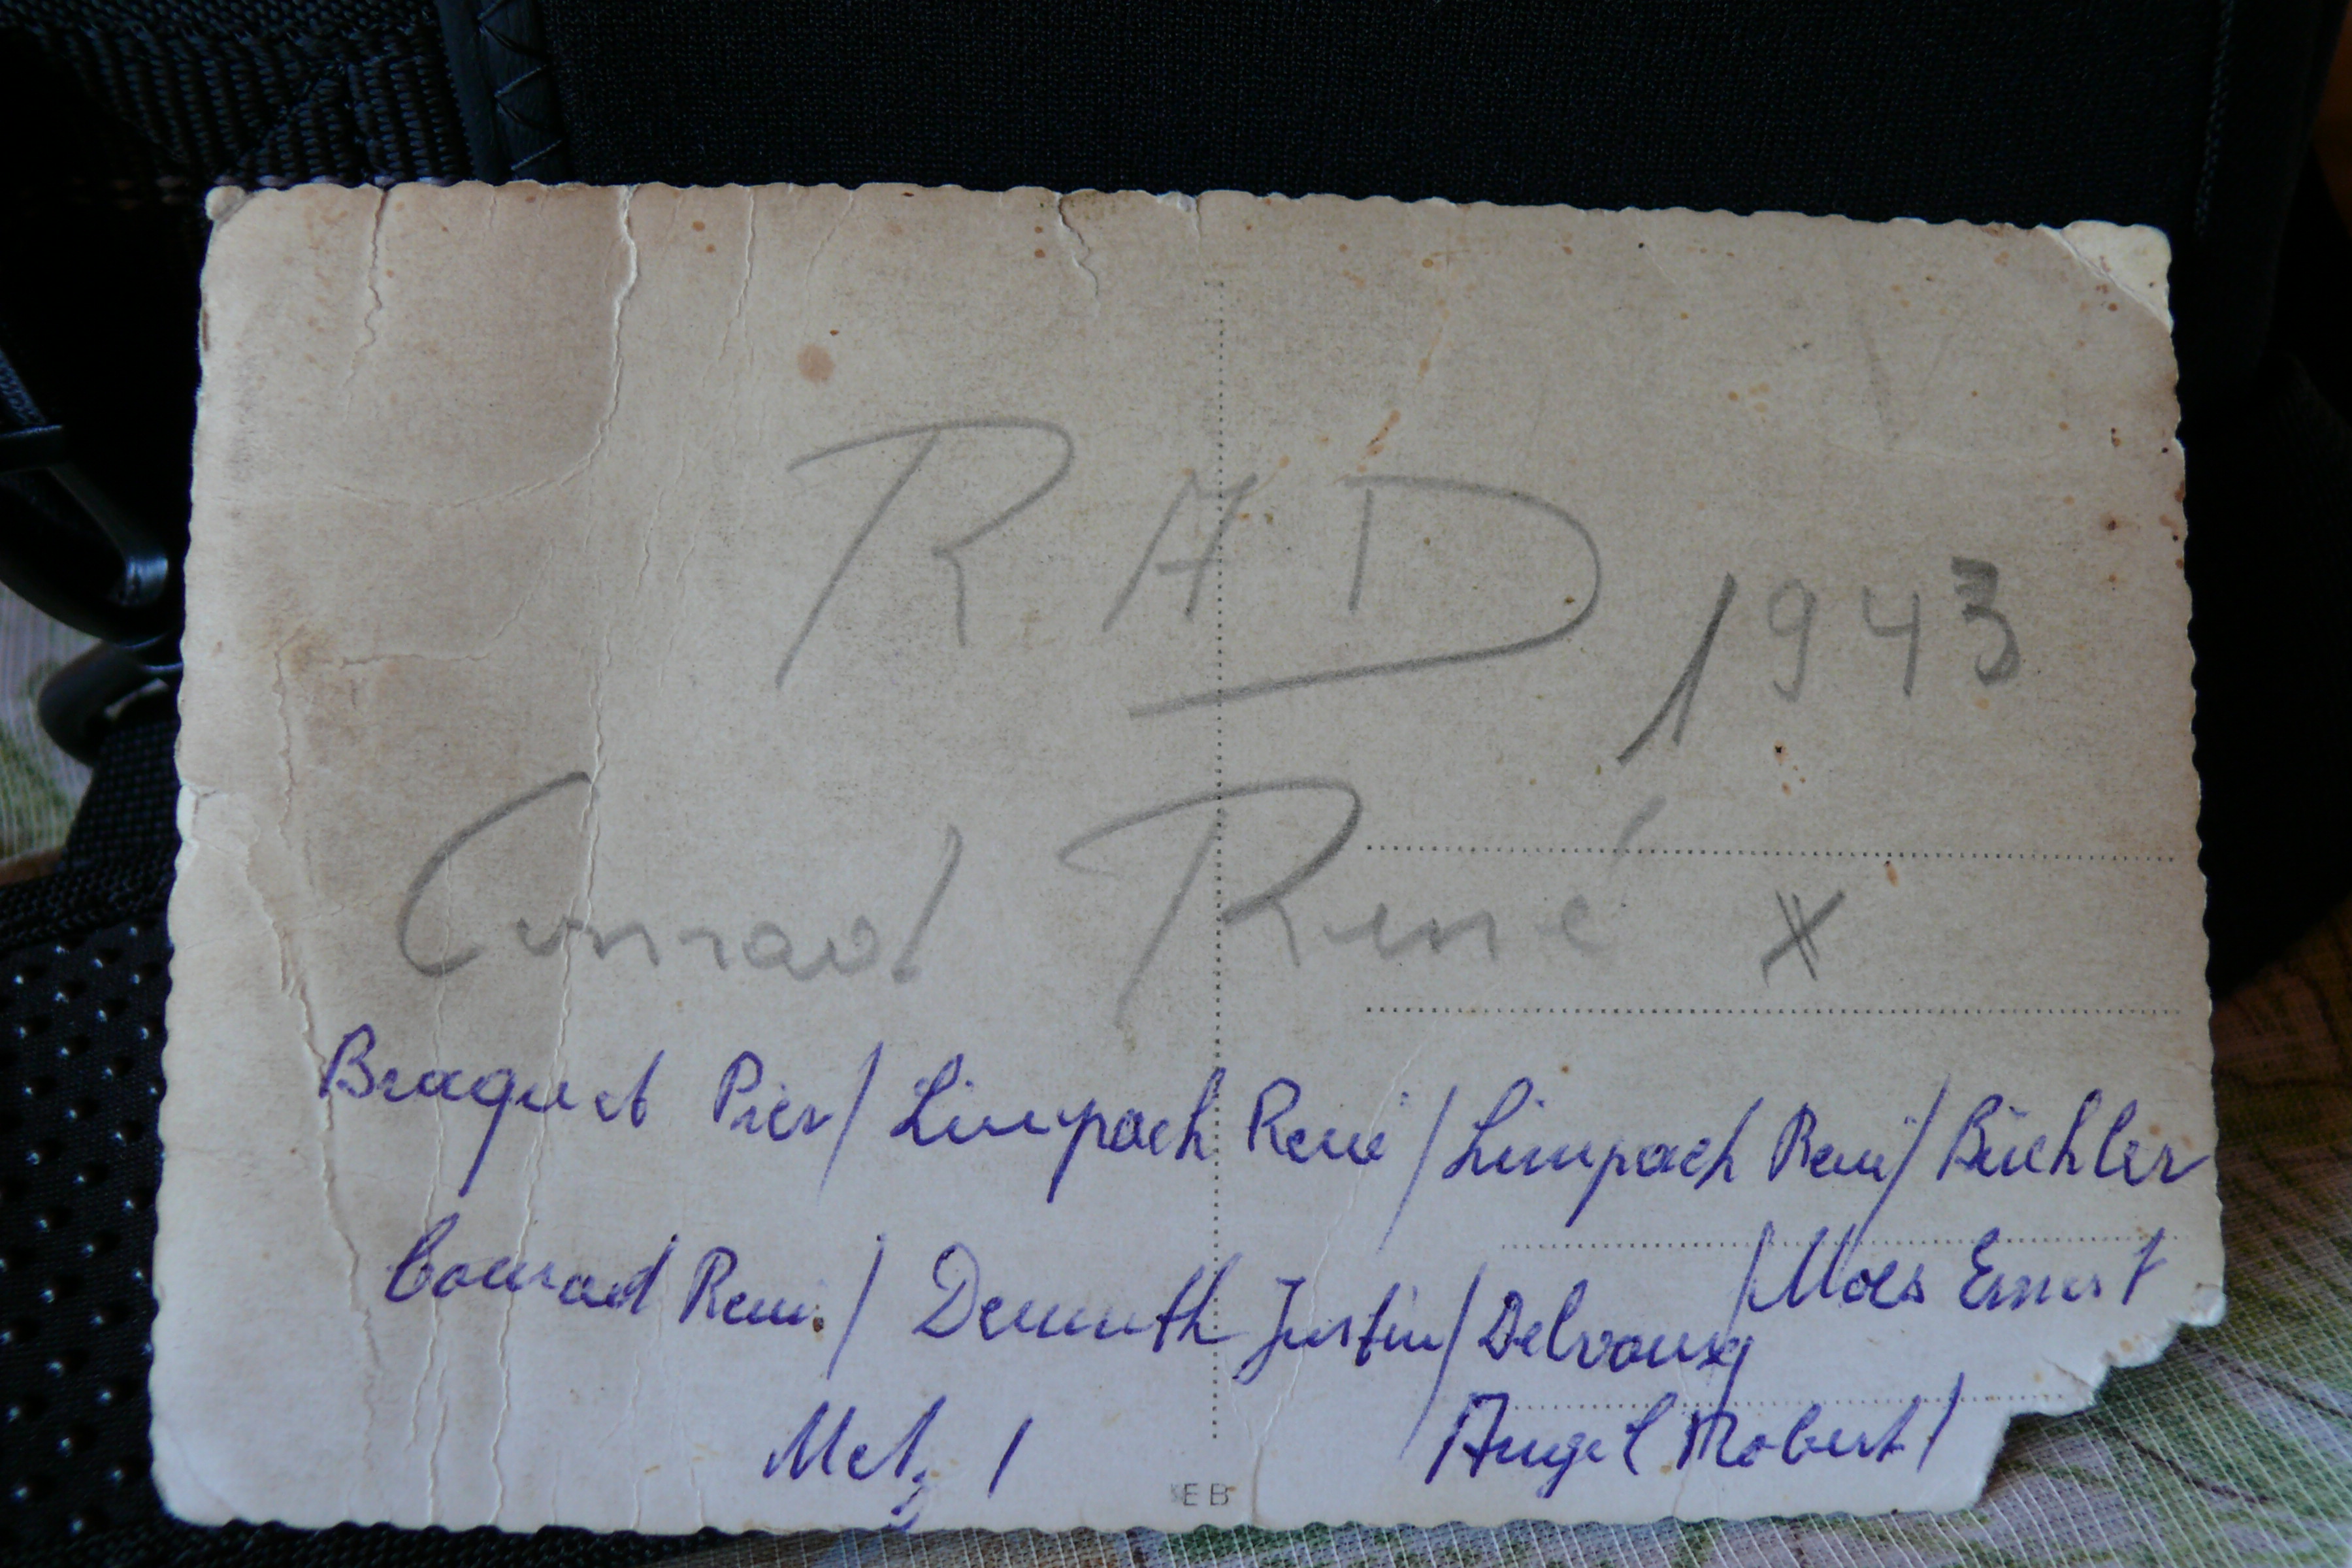 RAD 1943
Conrad René x
Braquet Pier / Limpach René / Limpach René / Büchler
Conrad René. / Demuth Justin / Delvaux / Moes Ernest
Metz / Angel Robert /
EB